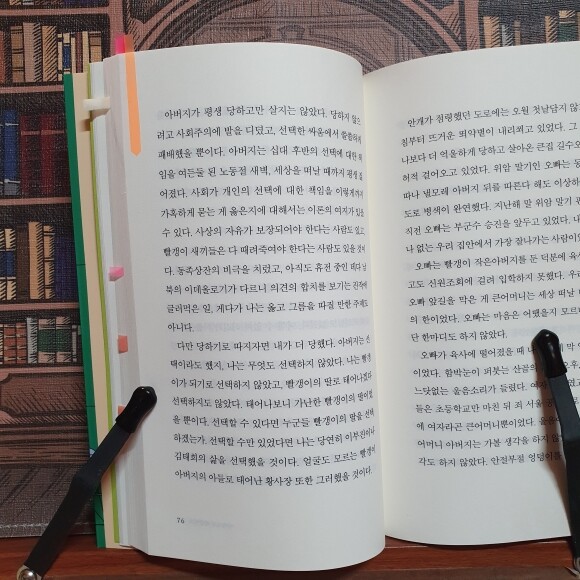 아버지가 평생 당하고만 살지는 않았다. 당하지 않으
려고 사회주의에 발을 디뎠고, 선택한 싸움에서 쓸쓸하게
패배했을 뿐이다. 아버지는 십대 후반의 선택에 대한 책
임을 여든둘 된 노동절 새벽, 세상을 떠날 때까지 평생
어졌다. 사회가 개인의 선택에 대한 책임을 이렇게까지
가혹하게 묻는 게 옳은지에 대해서는 이론의 여지가 있
수 있다. 사상의 자유가 보장되어야 한다는 사람도 있고
빨갱이 새끼들은 다 때려죽여야 한다는 사람도 있을 것이
다. 동족상잔의 비극을 치렀고, 아직도 휴전 중인 데다 남
북의 이데올로기가 다르니 의견의 합치를 보기는 진작에
글러먹은 일, 게다가 나는 옳고 그름을 따질 만한 주제도
아니다.
다만 당하기로 따지자면 내가 더 당했다. 아버지는 선
택이라도 했지, 나는 무엇도 선택하지 않았다. 나는 빨갱
이가 되기로 선택하지 않았고, 빨갱이의 딸로 태어나겠다
선택하지도 않았다. 태어나보니 가난한 빨갱이의 딸이었
을 뿐이다. 선택할 수 있다면 누군들 빨갱이의 딸을 선택
하겠는가. 선택할 수만 있었다면 나는 당연히 이부진이나
김태희의 삶을 선택했을 것이다. 얼굴도 모르는 빨갱이
아버지의 아들로 태어난 황사장 또한 그러했을 것이다.
76
안개가 점령했던 도로에는 오월 첫날답지 않
침부터 뜨거운 뙤약볕이 내리쬐고 있었다. 그
나보다 더 억울하게 당하고 살아온 큰집 길수오
허적 걸어오고 있었다. 위암 말기인 오빠는 등
따나 낼모레 아버지 뒤를 따른다 해도 이상하
도로 병색이 완연했다. 지난해 말 위암 말기 판
직전 오빠는 부군수 승진을 앞두고 있었다. 내
나 없는 우리 집안에서 가장 끝나가는 사람이었
오빠는 빨갱이 작은아버지를 둔 덕분에 육사
고도 신원조회에 걸려 입학하지 못했다. 우리
오빠 앞길을 막은 게 큰어머니는 세상 떠날
의 한이었다. 오빠는 마음은 어땠을지 모르
단 한마디도 하지 않았다.
오빠가 육사에 떨어졌을 때 내
이었다. 함박눈이 퍼붓는 산골의
느닷없는 울음소리가 들렸다. 여
들은 초등학교만 마친 뒤 죄 서울
에 여자라곤 큰어머니뿐이었다. 울음
어머니 아버지는 가볼 생각을 하지 않
각도 하지 않았다. 안절부절 엉덩이를